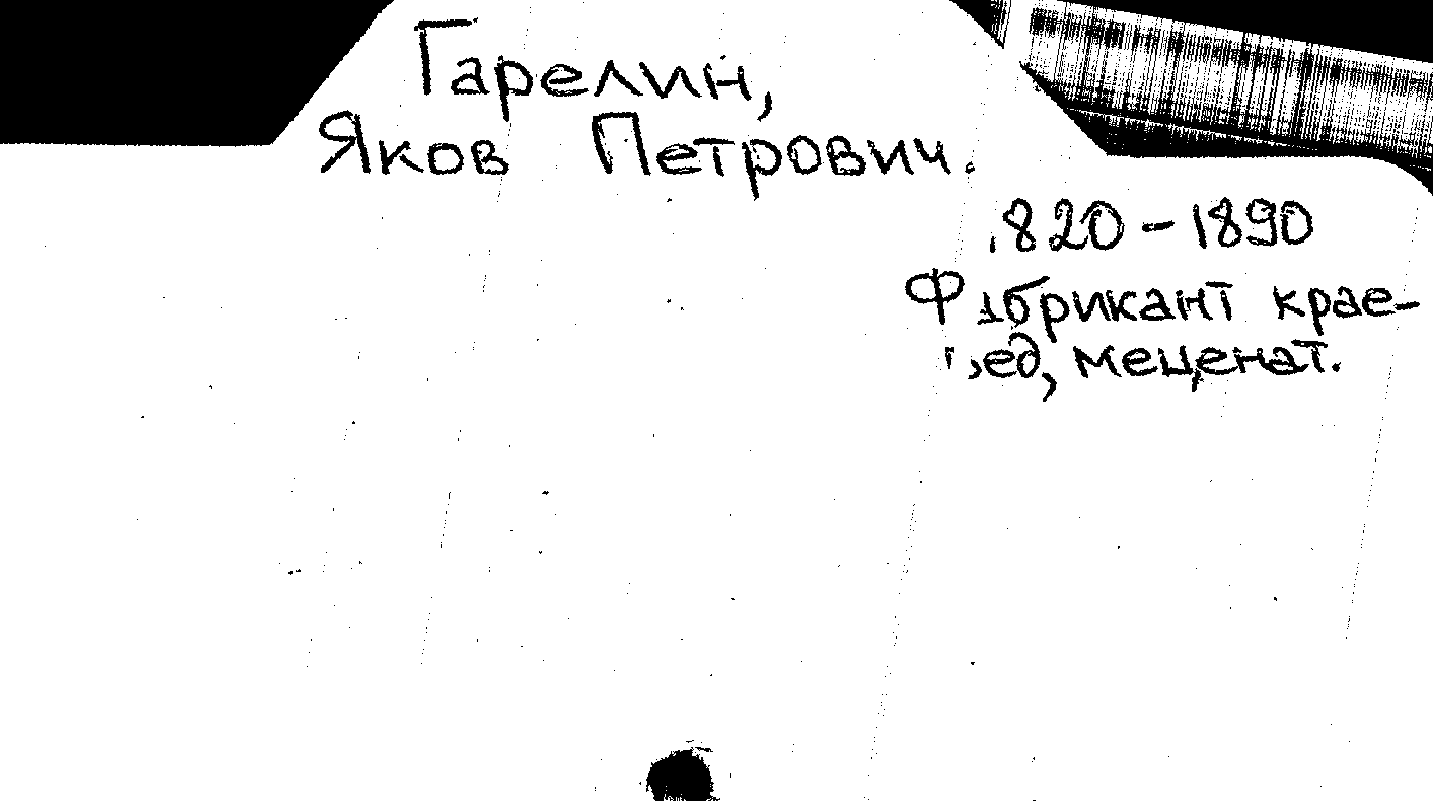 Гарелин,
Яков Петрович.
1820-1890
Фабрикант крае-
вед, меценат.